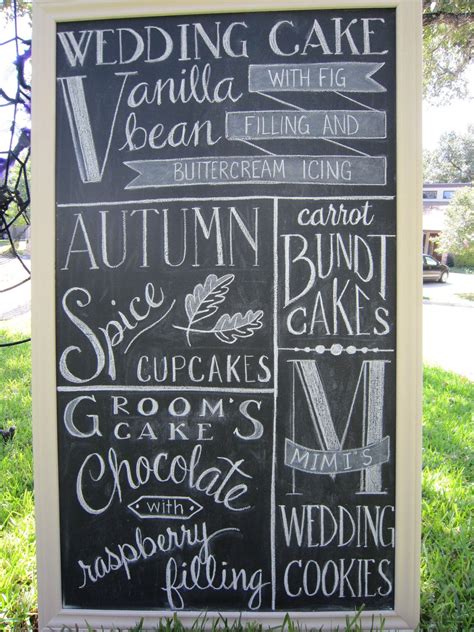 WEDDING CAKE
Vanilla bean
WITH FIG
FILLING AND
BUTTERCREAM ICING
AUTUMN
Spice
CUPCAKES
carrot
BUNDT
CAKES
GROOM'S
CAKE
Chocolate
with
raspberry
filling
M
MIMI'S
WEDDING
COOKIES